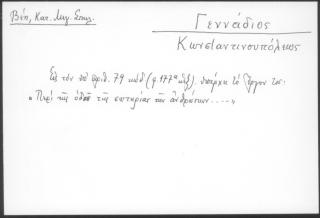 Βέη, Κατ. Μεγ. Σπηλ.
Γεννάδιος
Κωνσταντινουπόλεως
Εἰς τὸν ὑπ' ἀριθ. 79 κώδ. (φ. 177α κἑξ) ὑπάρχει τὸ ἔργον του:
"Περὶ τῆς ὁδοῦ τῆς σωτηρίας τῶν ἀνθρώπων....."